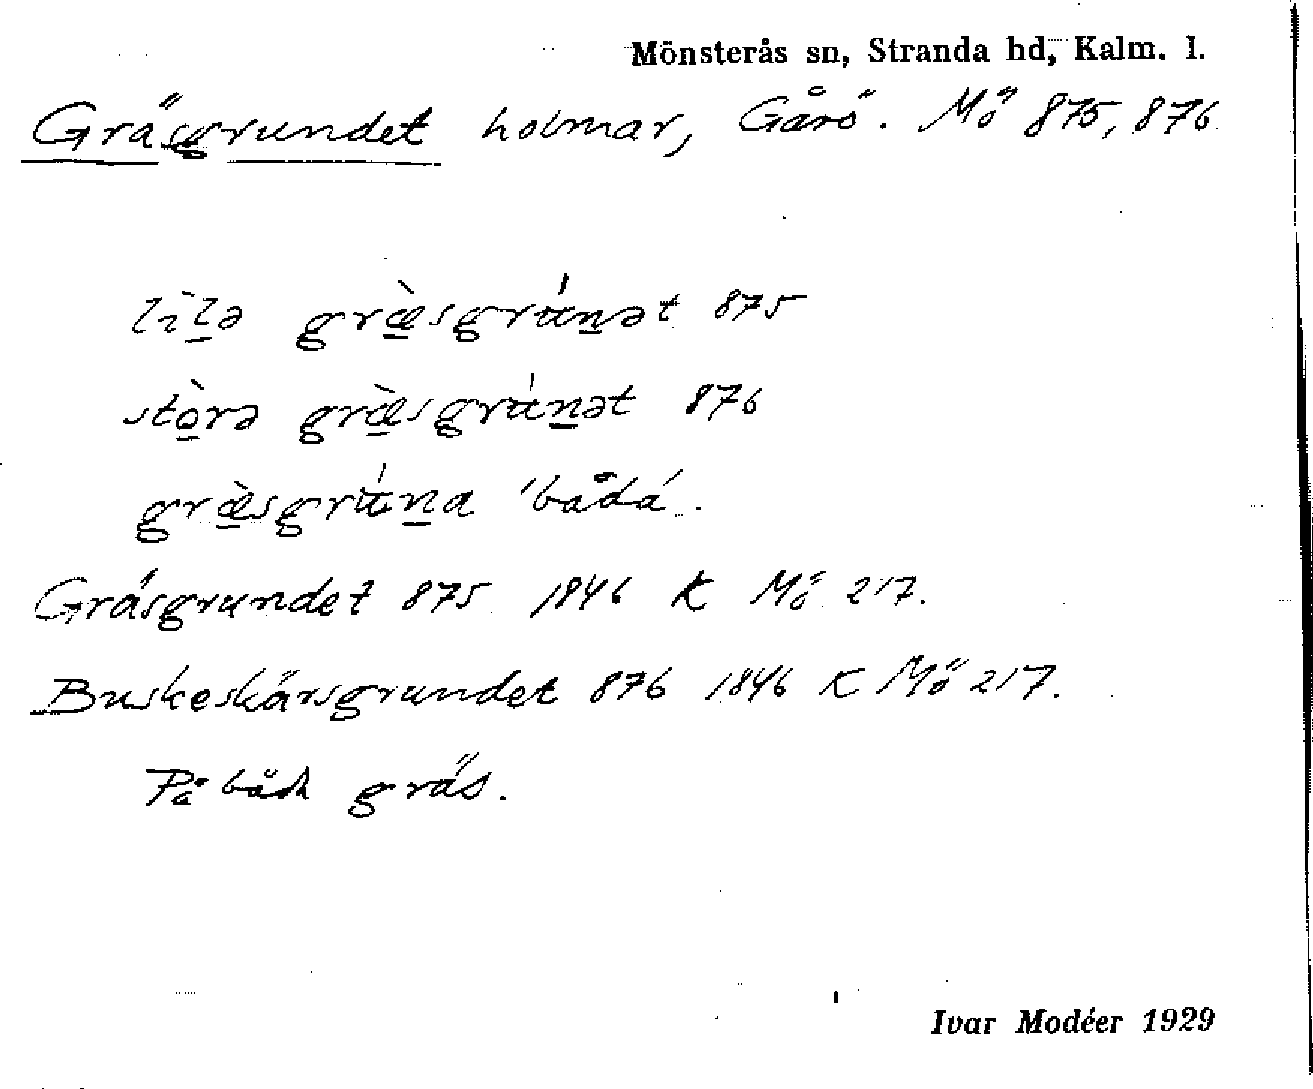 Mönsterås sn, Stranda hd, Kalm. l.
Gräsgrundet holmar, Gårö. Mö 875, 876
lìlə græ̀sgrúnət 875
stòrə græ̀sgrúnət 876
græ̀sgrúna 'båda'.
Gräsgrundet 875 1846 K Mö 217.
Buskeskärsgrundet 876 1846 K Mö 217.
På båda gräs.
Ivar Modéer 1929